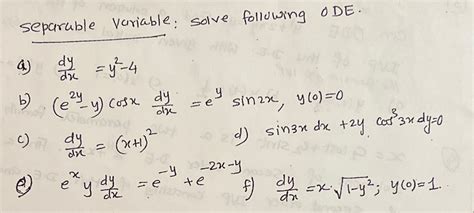 separable variable: solve following ODE.
a) dy/dx = y²-4
b) (e^2y - y) cosx dy/dx = e^y sin2x, y(0)=0
c) dy/dx = (x+1)² d) sin3x dx + 2y cos³3x dy=0
e) e^x y dy/dx = e^-y + e^-2x-y f) dy/dx = x·√1-y²; y(0)=1.